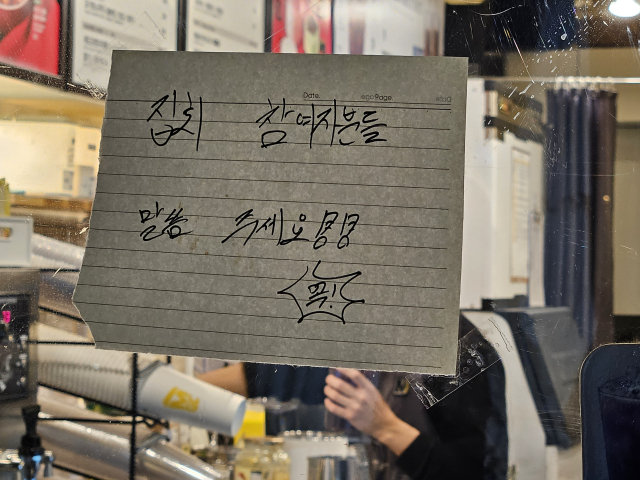 Date.
Page.
집회 참여자분들
말씀 주세요
꼭!